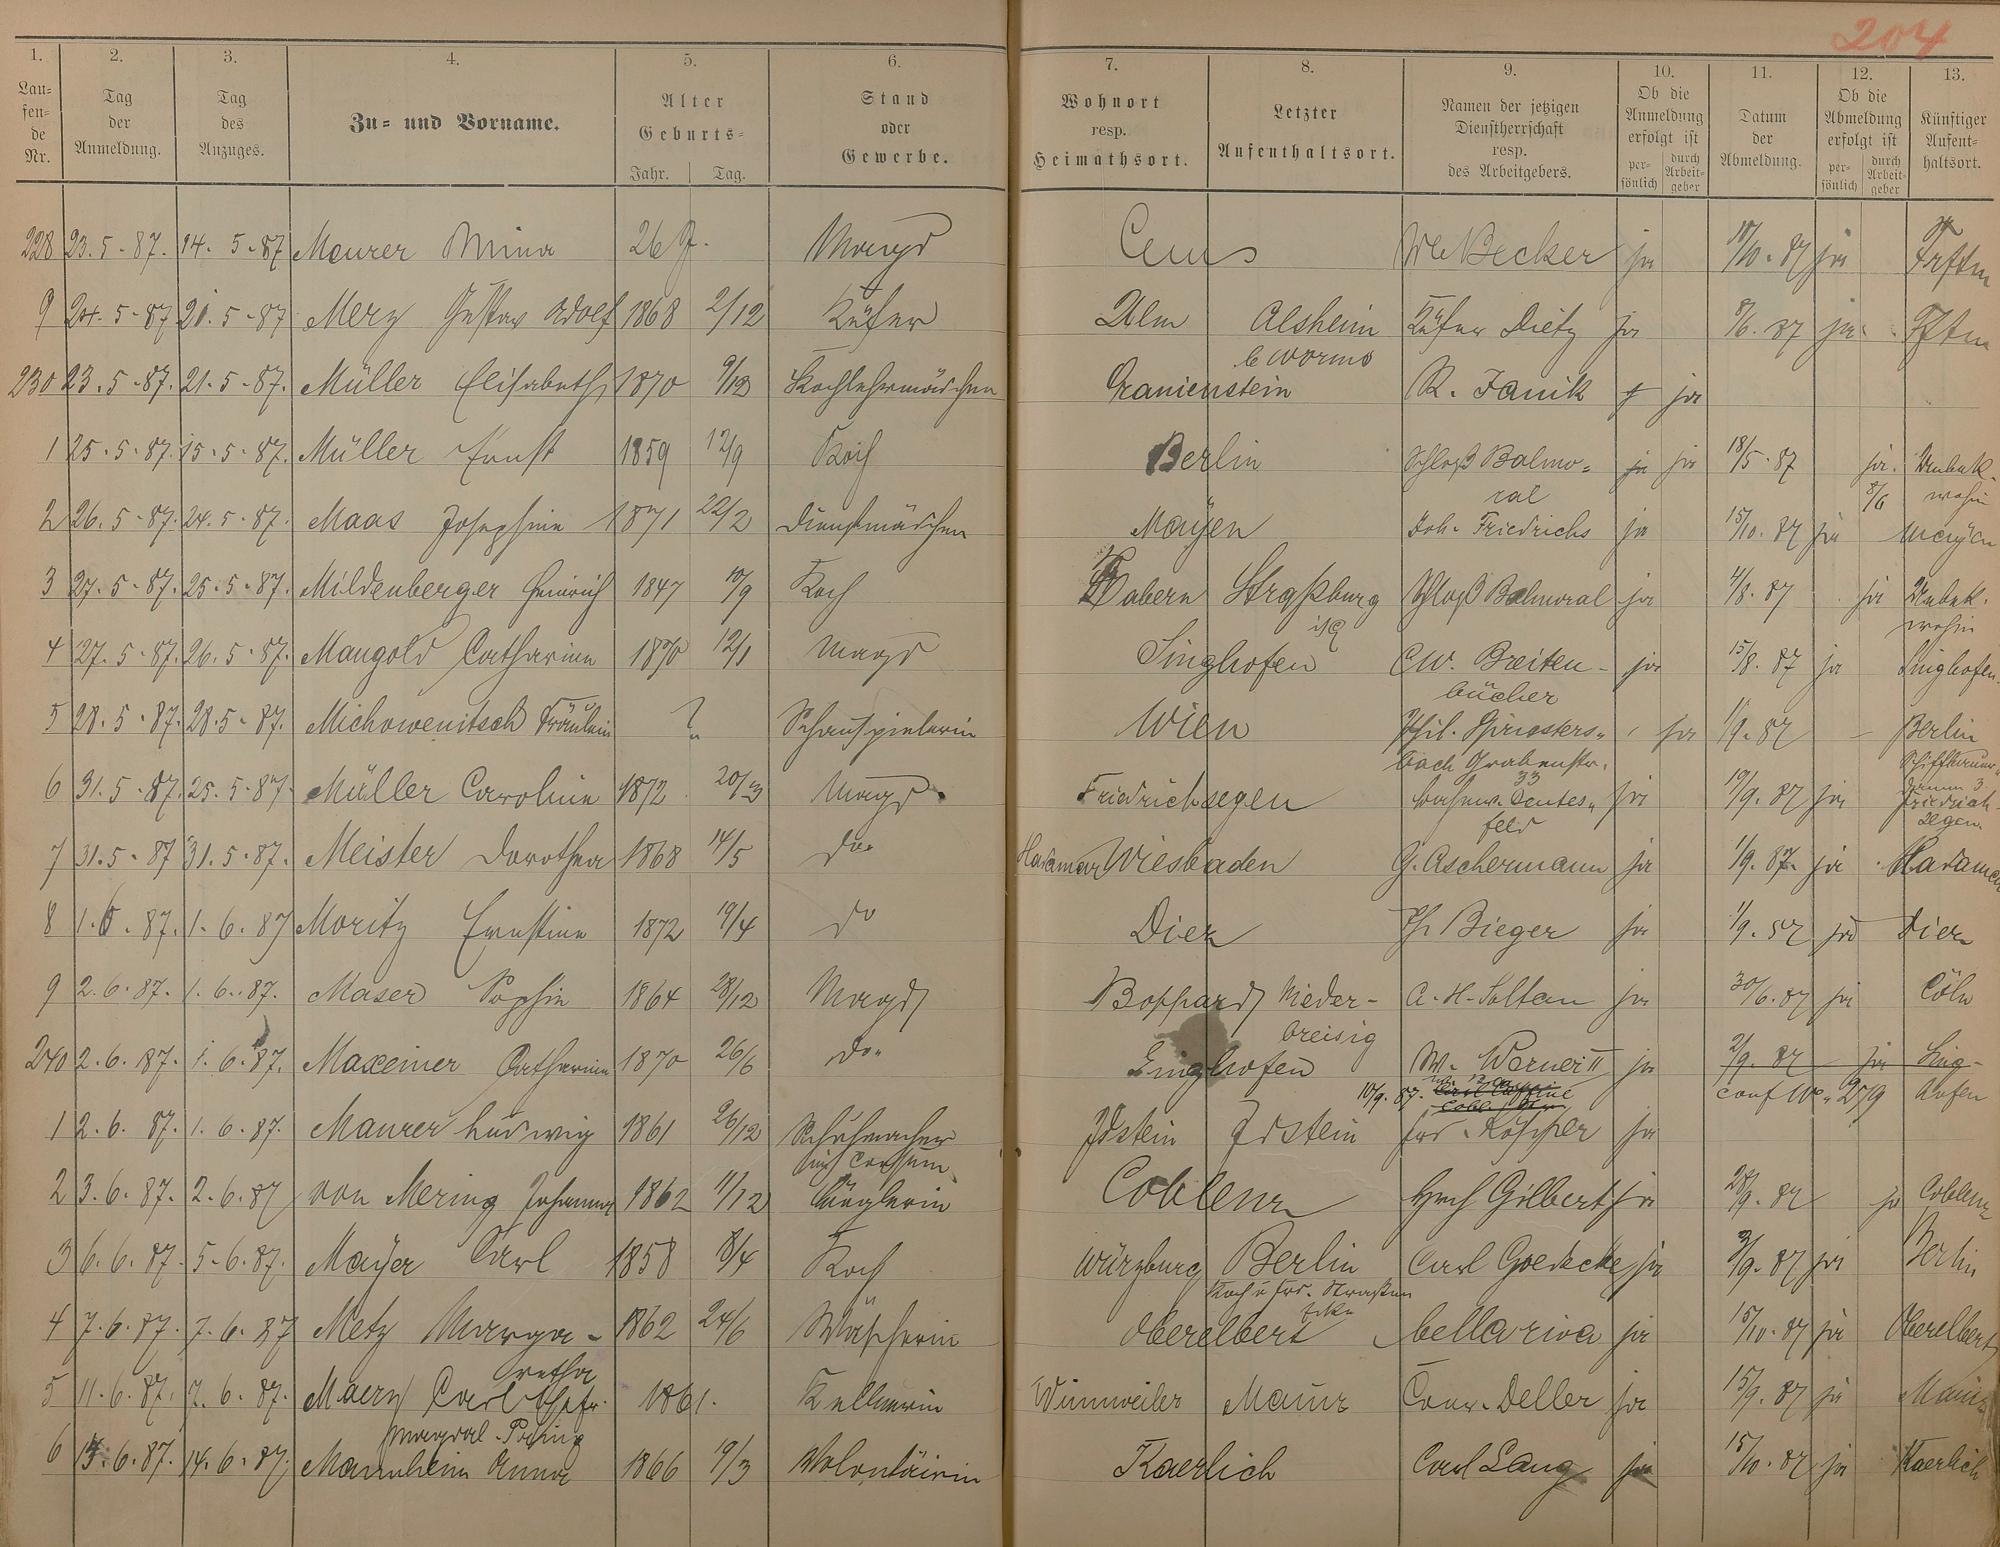 204
1. 2. 3. 4. 5. 6. 7. 8. 9. 10. 11. 12. 13.
Laufende Nr. Tag der Anmeldung. Tag des Anzuges. Zu- und Vorname. Alter Geburts- Jahr. Tag. Stand oder Gewerbe. Wohnort resp. Heimathsort. Letzter Aufenthaltsort. Namen der jetzigen Dienstherrschaft resp. des Arbeitgebers. Ob die Anmeldung erfolgt ist persönlich durch Arbeitgeber Datum der Abmeldung. Ob die Abmeldung erfolgt ist persönlich durch Arbeitgeber Künftiger Aufenthaltsort.
228 23.5-87. 14. 5-87 Meurer Mina 26 J. Magd Ems Becker ja 87 ja Frftm
9 24. 5-87 21. 5-87 Merz Gustav Adolf 1868 2/12 Küfer Ulm Alsheim Küfer Dietz ja 8/6. 87 ja
b Worms
230 23. 5-87. 21-5-87. Müller Elisabeth 1870 Kochlehrmädchen Oranienstein R. Janik ja
1 25-5-87. 15-5-87. Müller Ernst 1859 12/9 Koch Berlin Schloß Balmo= ja ja 18/5-87 ja. Unbek.
ral 8/6 wohin
2 26. 5-87. 24. 5-87. Maas Josephine 1871 22/2 Dienstmädchen Mayen Joh. Friedrichs ja 15/10. 87 ja Mayen
3 27. 5-87. 25-5-87. Mildenberger Heinrich 1847 10/9 Koch Zabern Straßburg Schloß Balmoral ja 4/8. 87 ja Unbek.
i/E wohin
4 27. 5-87. 26. 5-87. Mangold Catharine 1870 12/1 Magd Singhofen C W. Breiten- ja 15/8. 87 ja Singhofen.
bücher
5 28. 5-87. 28.5-87. Michowenitsch Fräulein ? Schauspielerin Wien Phil. Spriesters= ja 1/9. 87 Berlin
bach Grabenstr. Schiffbauer=
33 damm 3
6 31. 5-87. 25. 5-87. Müller Caroline 1872 20/3 Magd Friedrichsegen Deutes= ja 19/9. 87 ja Friedrich
feld segen.
7 31.5-87 31. 5-87. Meister Dorothea 1868 14/5 do. Hadamar Wiesbaden G. Aschermann ja 1/9. 87. ja Hadamar
8 1.6. 87. 1. 6. 87 Moritz Ernstine 1872 19/4 do Diez Ph. Bieger ja 1/9. 87 ja Diez
9 2.6.87. 1.6.87. Maser Sophie 1864 28/12 Magd Boppard Nieder- A. H. Soltau ja 30/6.87 ja Cöln
breisig
240 2.6.87. 1.6.87. Maxeiner Catharine 1870 26/6 do. Singhofen W. Werner II ja 2/9. 87 ja Sing-
10/9. 87. hofen
1 2.6. 87. 1.6.87. Maurer Ludwig 1861 26/12 Schuhmacher Idstein Idstein Köpper ja
2 3.6.87. 2.6.87 von Mering Johanna 1862 11/12 Büglerin Coblenz Hch Gilbert ja 28/9. 87 ja Coblenz
3 6.6.87. 5.6.87. Mayer Carl 1858 8/4 Koch Würzburg Berlin Carl Goedecke ja 87 ja Berlin
Ecke
4 7.6.87. 7.6.87 Metz Marga- 1862 24/6 Wäscherin Oberelbert bella riva ja 15/10. 87 ja Oberelbert
retha
5 11.6.87. 7.6.87. Maery Carl 1861. Kellnerin Winnweiler Mainz Conr. Deller ja 15/9. 87 ja Mainz
6 6.87. 14. 6. 87. Mannheim Anna 1866 19/3 Volontäirin Kaerlich Carl Lang ja 15/10. 87 ja Kaerlich